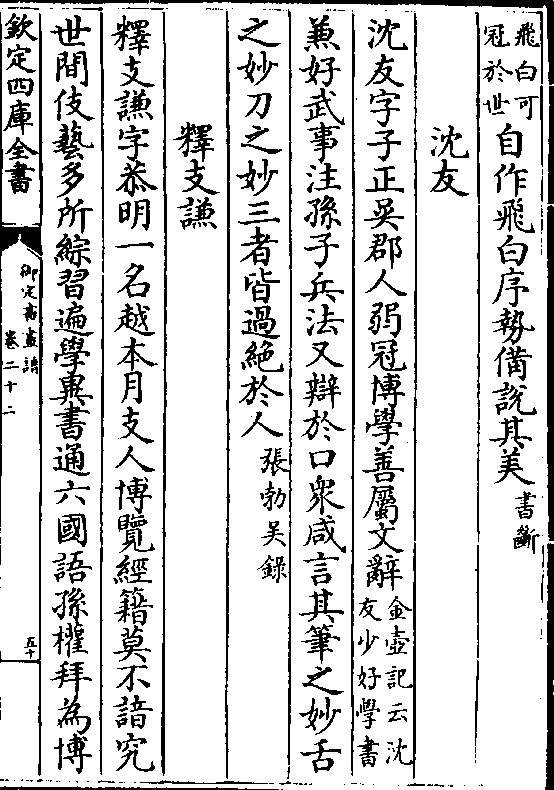 飛白可冠於世自作飛白序勢備說其美書斷
沈友
沈友字子正吳郡人弱冠博學善屬文辭金壺記云沈友少好學書
兼好武事注孫子兵法又辯於口衆咸言其筆之妙舌
之妙刀之妙三者皆過絶於人張勃吳錄
釋支謙
釋支謙字恭明一名越本月支人博覽經籍莫不諳究
世間伎藝多所綜習遍學異書通六國語孫權拜為博
欽定四庫全書
御定書畫譜
卷二十二
五十